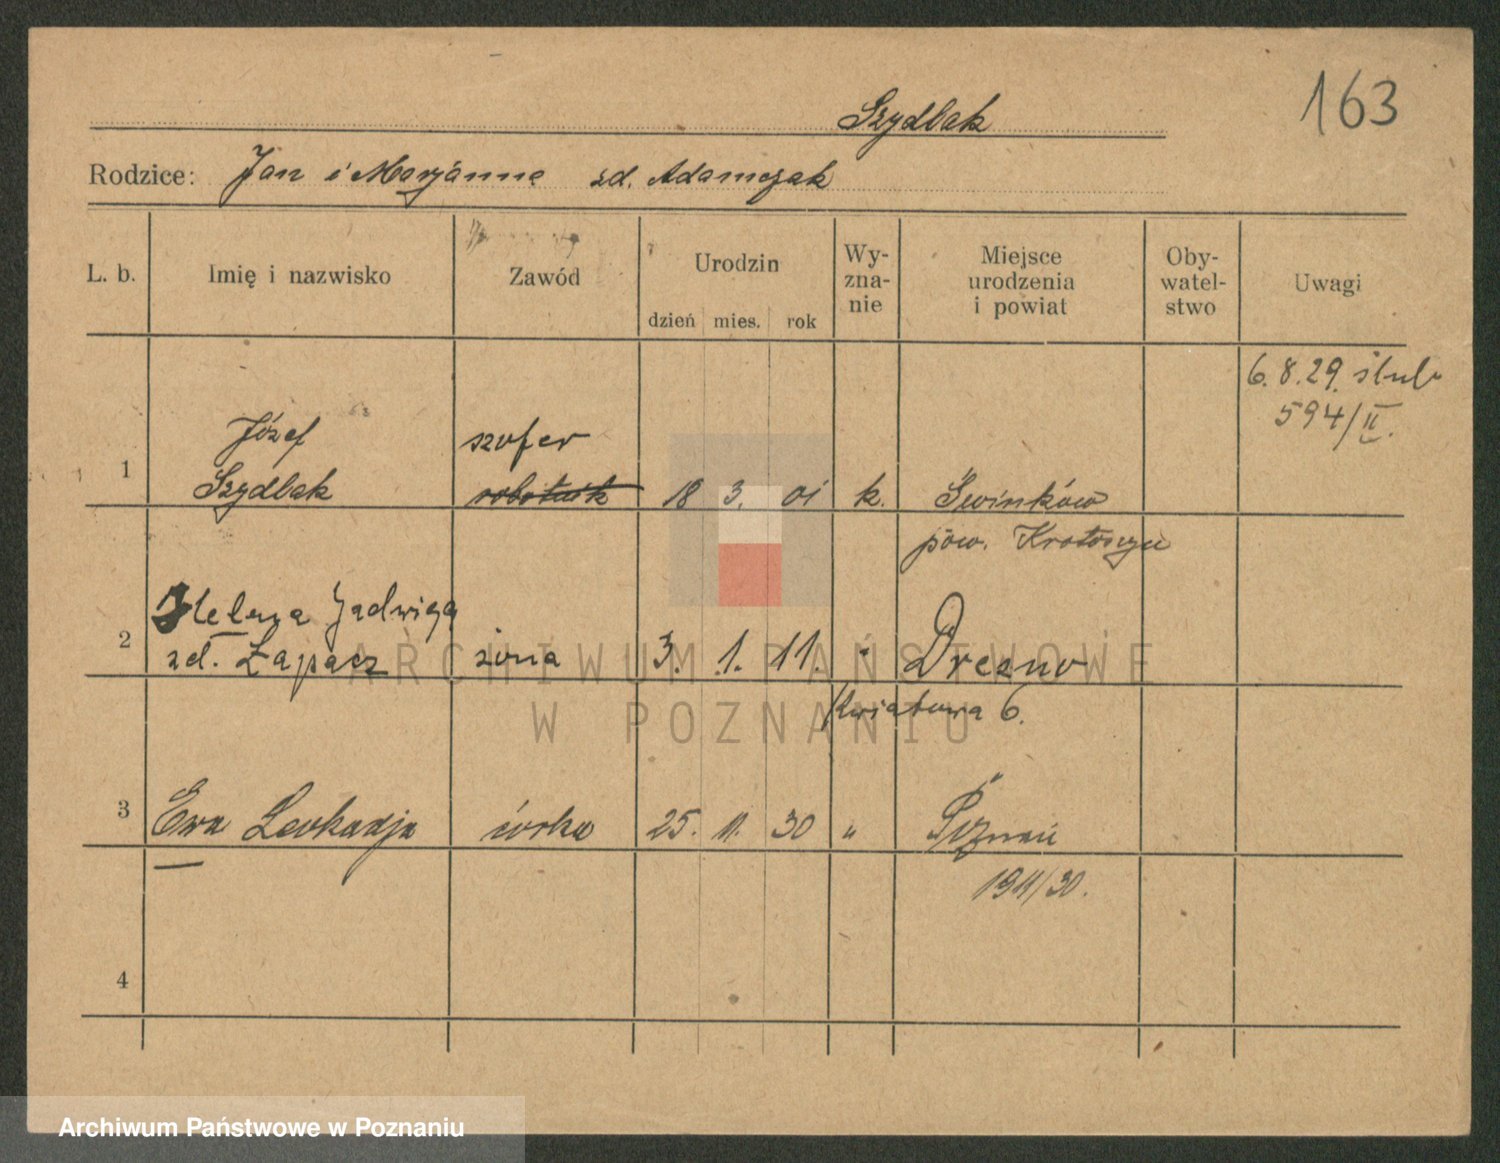 163
Szydlak
Rodzice: Jan i Marjanna zd. Adamczak
L. b. Imię i nazwisko Zawód Urodzin Wy-zna-nie Miejsce urodzenia i powiat Oby-watel-stwo Uwagi
dzień mies. rok
6.8.29. ślub
594/II.
Józef szofer
1 Szydlak robotnik 18 3. 01 k. Świnków
pow. Krotoszyn
Helena Jadwiga
2 zd. Łapacz żona 3. 1. 11. " Drezno
Kwiatowa 6.
3 Ewa Leokadja córka 25. 11. 30 " Poznań
1911/30.
4
ARCHIWUM PAŃSTWOWE
W POZNANIU
Archiwum Państwowe w Poznaniu